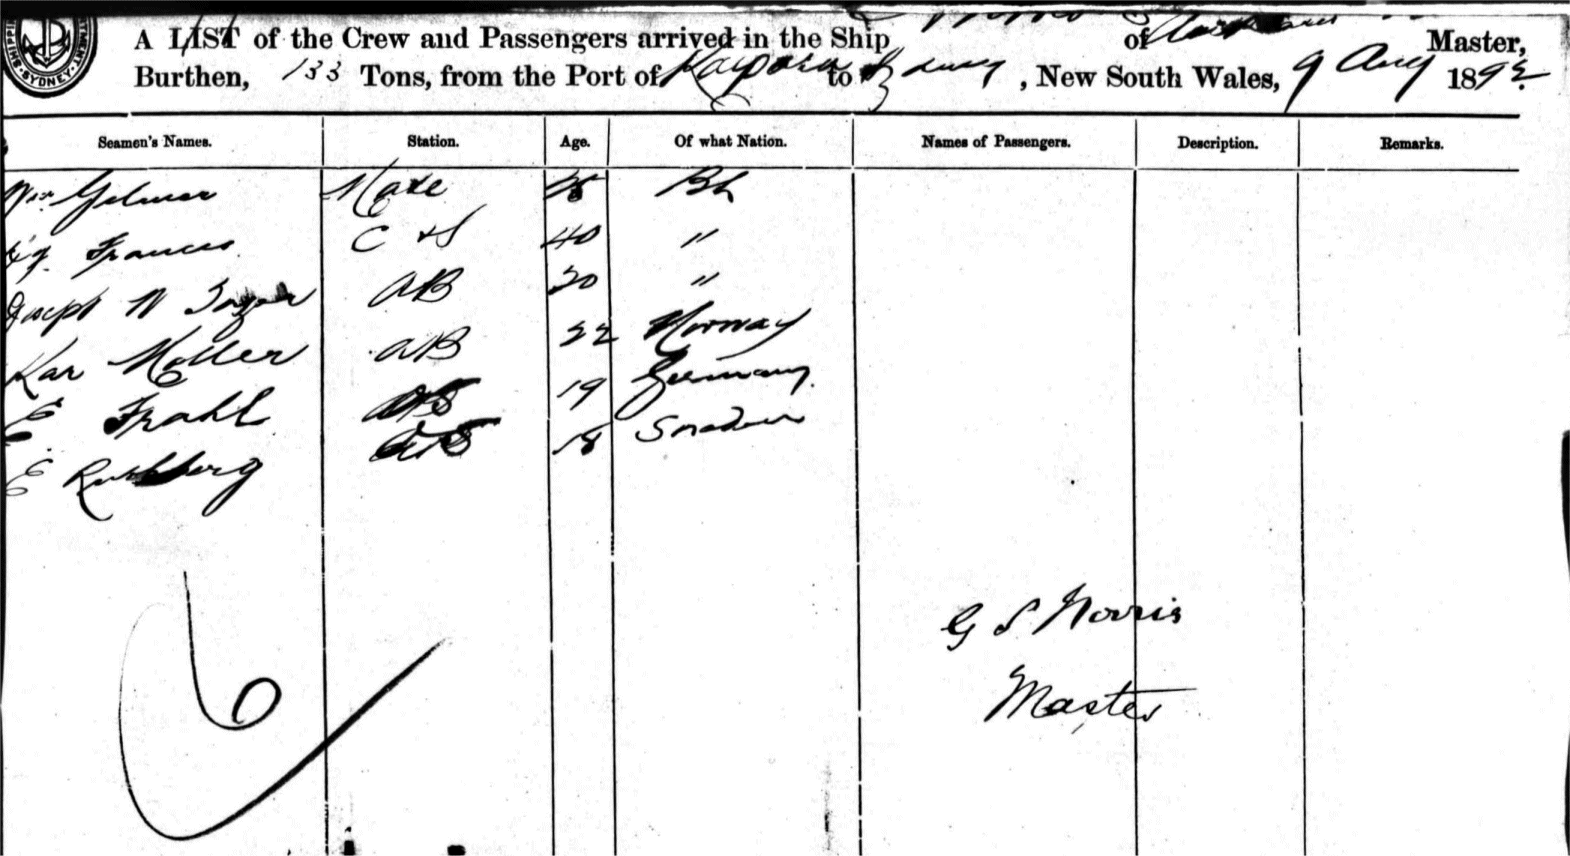 A LIST of the Crew and Passengers arrived in the Ship of Master,
Burthen, 133 Tons, from the Port of Kaipara to Sydney, New South Wales, 9 Aug 1892
Seamen's Names. Station. Age. Of what Nation. Names of Passengers. Description. Remarks.
Wm Gilmer Mate Bh
Frances C & S 40 "
Joseph W AB 20 "
Kar Moller AB 22 Norway
E Frahl 19 Germany
E 18
6
G S Norris
Master
SYDNEY